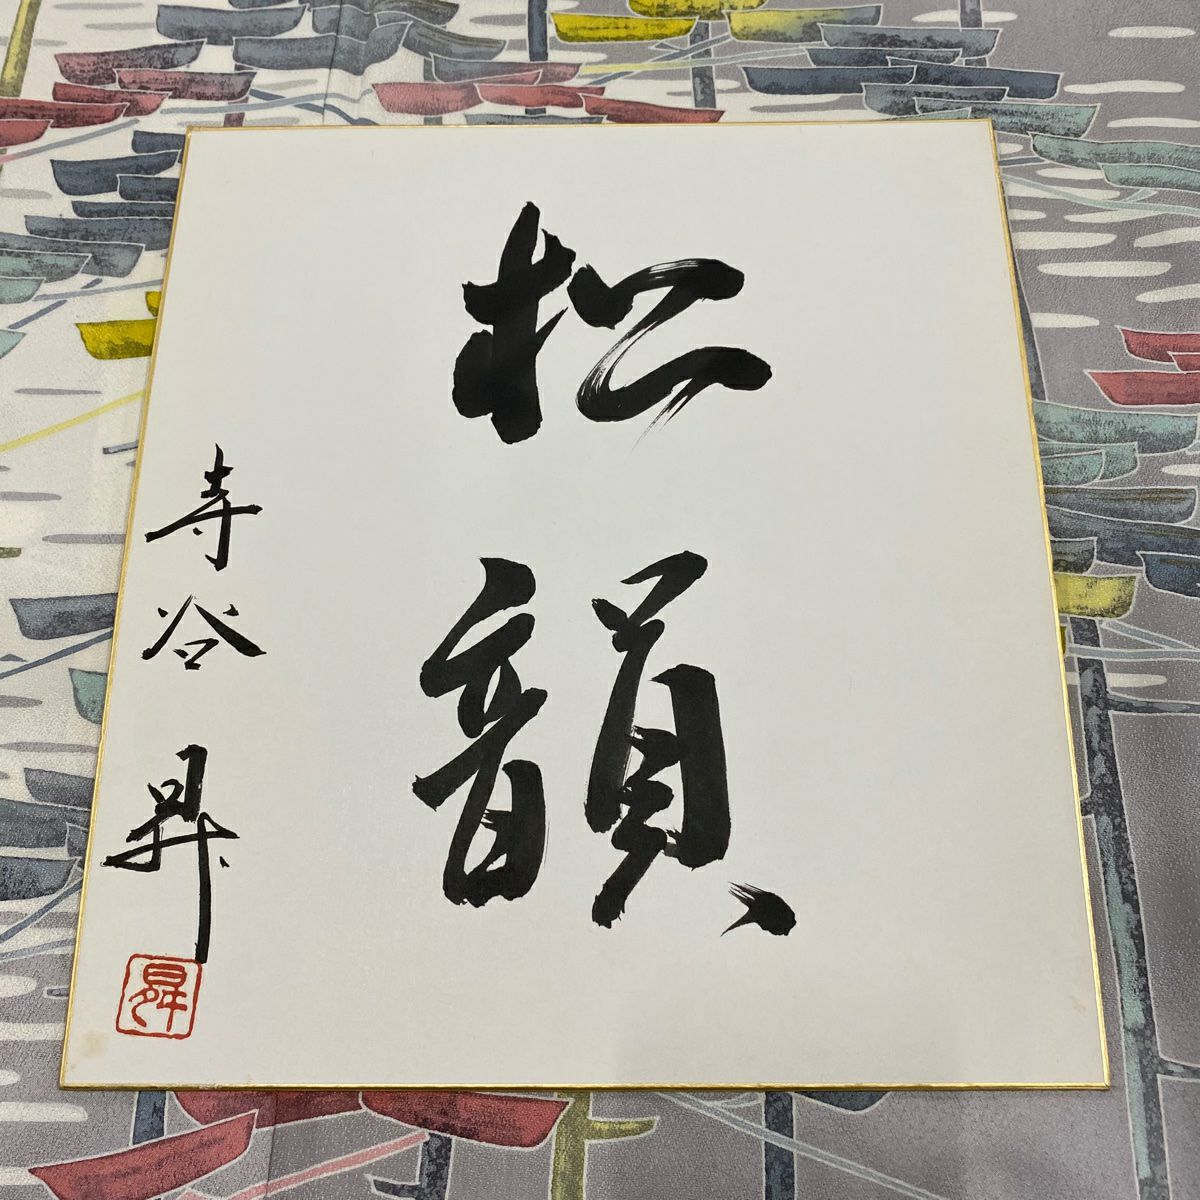 松韻
寺谷昇
昇